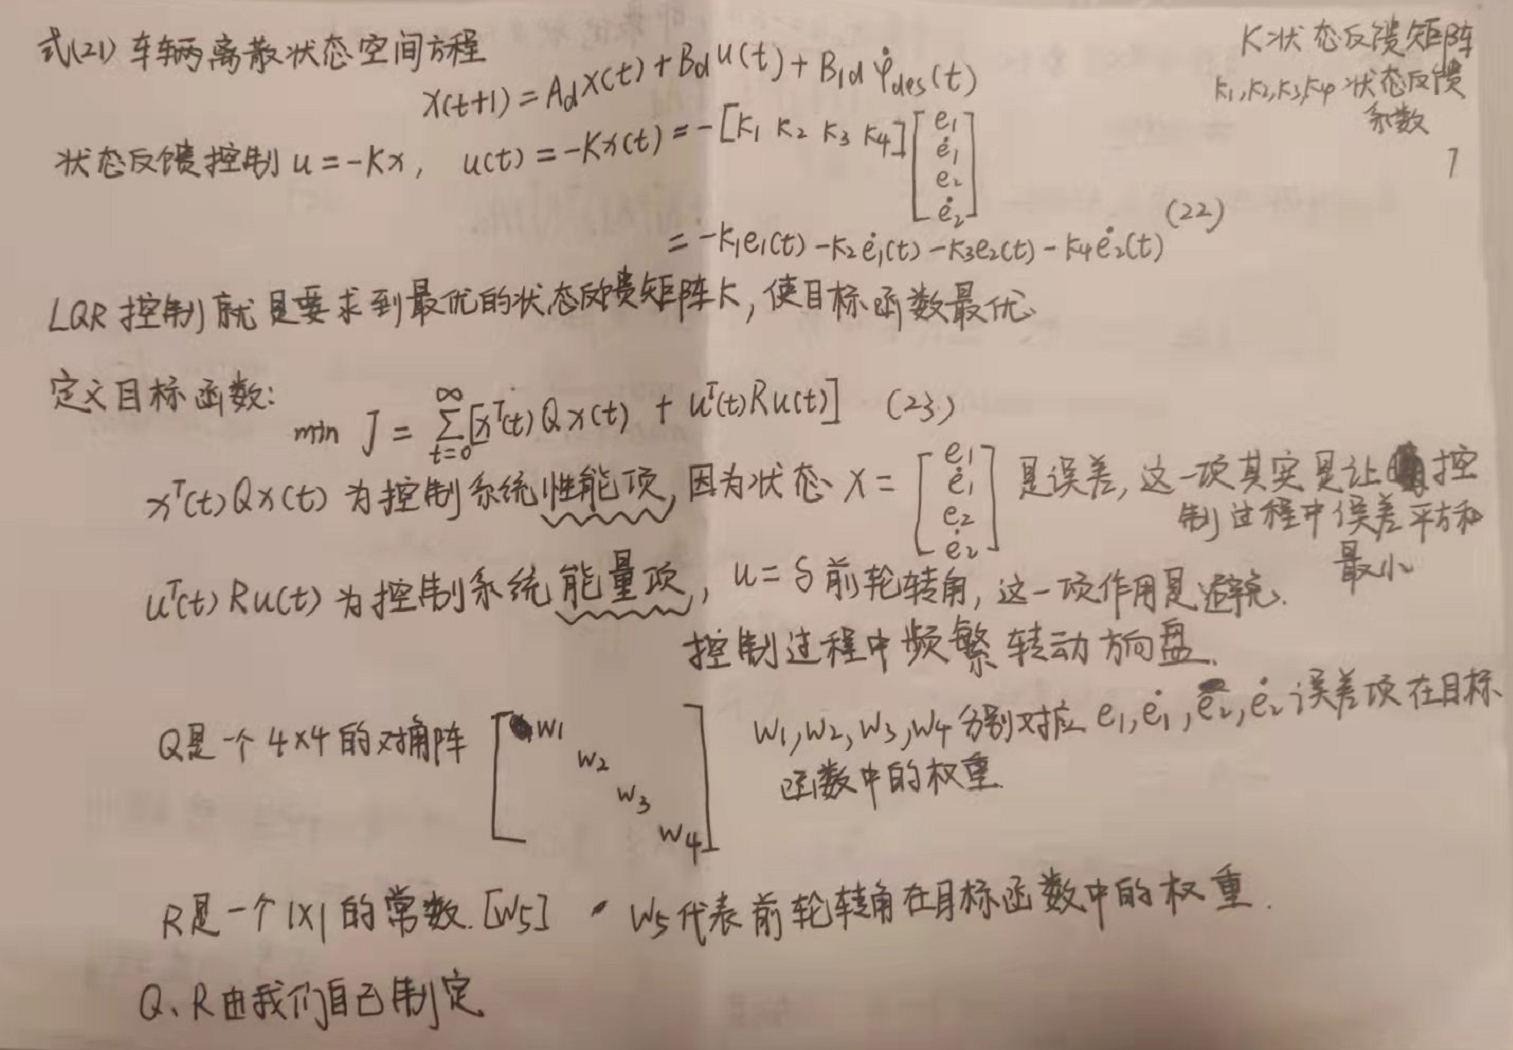 式(21) 车辆离散状态空间方程
x(t+1) = A_d x(t) + B_d u(t) + B_1d φ̇_des(t)
K状态反馈矩阵
k1,k2,k3,k4 状态反馈
系数
状态反馈控制 u = -Kx, u(t) = -Kx(t) = -[k1 k2 k3 k4] [e1 ė1 e2 ė2]
7
= -k1e1(t) - k2ė1(t) - k3e2(t) - k4ė2(t) (22)
LQR控制就是要求到最优的状态反馈矩阵K, 使目标函数最优
定义目标函数:
min J = ∑_{t=0}^{∞} [x^T(t)Qx(t) + u^T(t)Ru(t)] (23)
x^T(t)Qx(t) 为控制系统性能项, 因为状态 x = [e1 ė1 e2 ė2] 是误差, 这一项其实是让控
制过程中误差平方和
最小
u^T(t)Ru(t) 为控制系统能量项, u = δ 前轮转角, 这一项作用是避免.
控制过程中频繁转动方向盘.
Q是一个4×4的对角阵 [w1 w2 w3 w4] w1,w2,w3,w4 分别对应 e1,ė1,e2,ė2 误差项在目标
函数中的权重.
R是一个1×1的常数.[w5] w5代表前轮转角在目标函数中的权重.
Q、R由我们自己制定